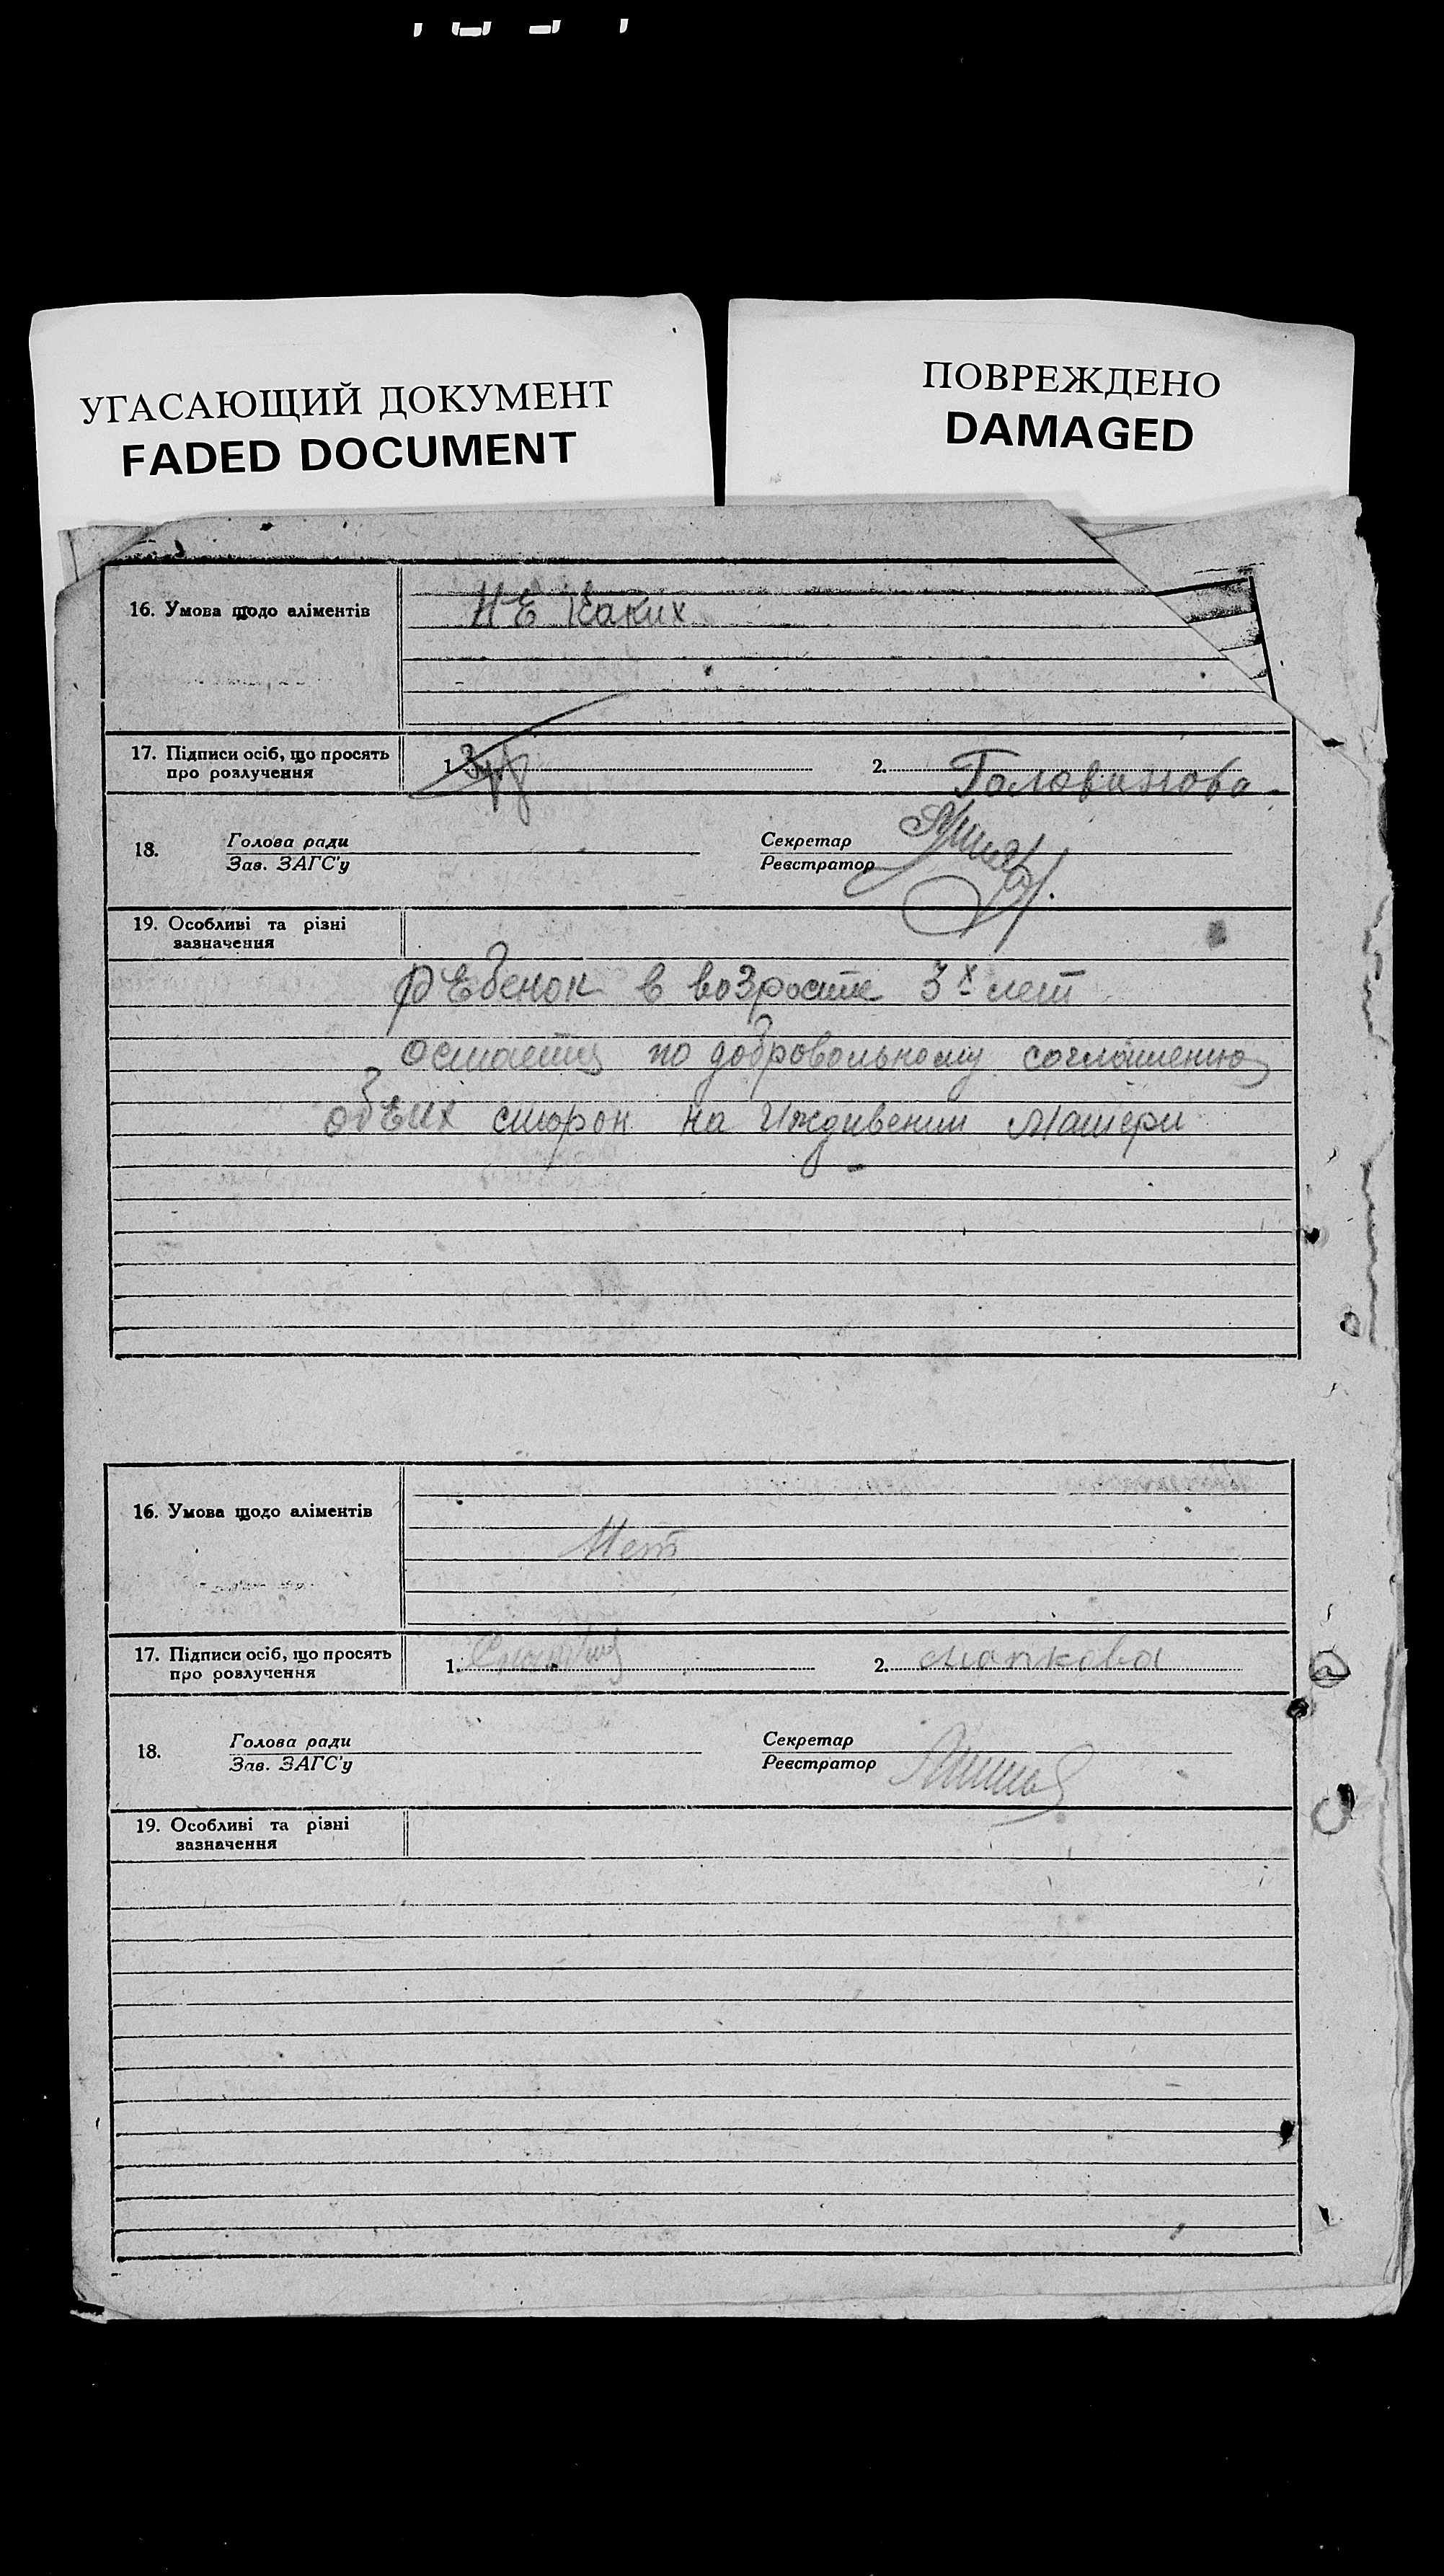 УГАСАЮЩИЙ ДОКУМЕНТ
FADED DOCUMENT
ПОВРЕЖДЕНО
DAMAGED
16. Умова щодо аліментів
НЕ каких
17. Підписи осіб, що просять
про розлучення
1.
2. Голованова
18.
Голова ради
Зав. ЗАГС'у
Секретар
Реєстратор
19. Особливі та різні
зазначення
рЕбенок в возросте 3х лет
остается по добровольному соглашению
обЕих сторон на иждивении матери
16. Умова щодо аліментів
Нет
17. Підписи осіб, що просять
про розлучення
1.
2.
18.
Голова ради
Зав. ЗАГС'у
Секретар
Реєстратор
19. Особливі та різні
зазначення